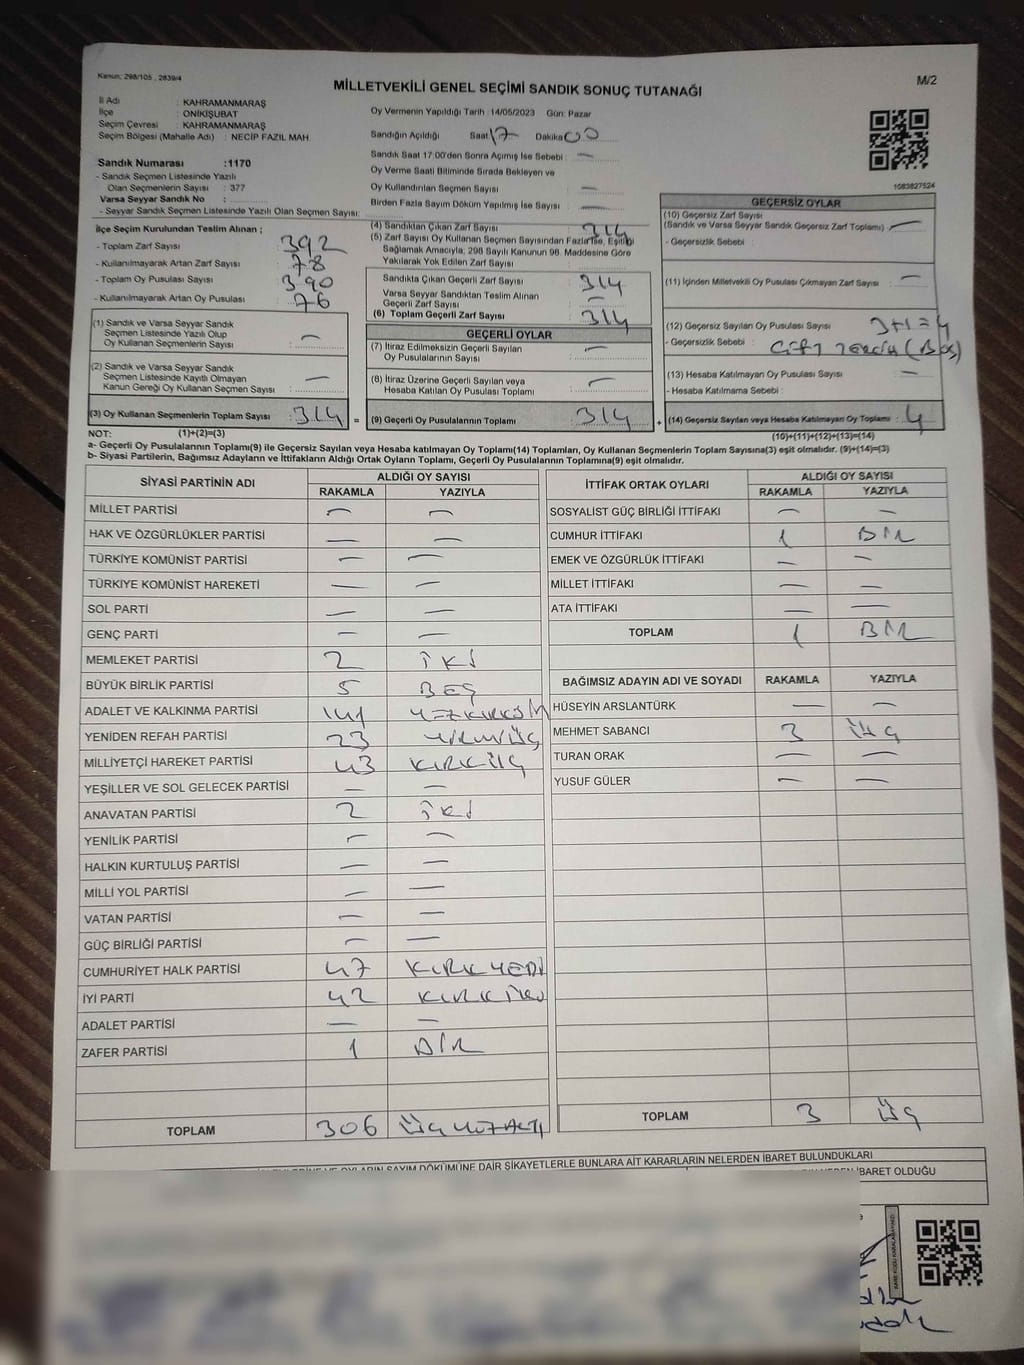 Kanun; 298/105 , 2839/4
M/2
MİLLETVEKİLİ GENEL SEÇİMİ SANDIK SONUÇ TUTANAĞI
İl Adı : KAHRAMANMARAŞ
İlçe : ONİKİŞUBAT
Seçim Çevresi : KAHRAMANMARAŞ
Seçim Bölgesi (Mahalle Adı) : NECİP FAZIL MAH
Sandık Numarası :1170
- Sandık Seçmen Listesinde Yazılı
Olan Seçmenlerin Sayısı : 377
Varsa Seyyar Sandık No :
- Seyyar Sandık Seçmen Listesinde Yazılı Olan Seçmen Sayısı:
Oy Vermenin Yapıldığı Tarih : 14/05/2023 Gün: Pazar
Sandığın Açıldığı Saat 17 Dakika 00
Sandık Saat 17.00'den Sonra Açımış İse Sebebi : —
Oy Verme Saati Bitiminde Sırada Bekleyen ve
Oy Kullandırılan Seçmen Sayısı : —
Birden Fazla Sayım Döküm Yapılmış İse Sayısı : —
1083827524
İlçe Seçim Kurulundan Teslim Alınan ;
- Toplam Zarf Sayısı : 392
- Kullanılmayarak Artan Zarf Sayısı : 78
- Toplam Oy Pusulası Sayısı : 390
- Kullanılmayarak Artan Oy Pusulası : 76
(1) Sandık ve Varsa Seyyar Sandık
Seçmen Listesinde Yazılı Olup
Oy Kullanan Seçmenlerin Sayısı : —
(2) Sandık ve Varsa Seyyar Sandık
Seçmen Listesinde Kayıtlı Olmayan
Kanun Gereği Oy Kullanan Seçmen Sayısı : —
(3) Oy Kullanan Seçmenlerin Toplam Sayısı : 314
(4) Sandıktan Çıkan Zarf Sayısı : 314
(5) Zarf Sayısı Oy Kullanan Seçmen Sayısından Fazla İse, Eşitliği
Sağlamak Amacıyla; 298 Sayılı Kanunun 98. Maddesine Göre
Yakılarak Yok Edilen Zarf Sayısı :
Sandıkta Çıkan Geçerli Zarf Sayısı : 314
Varsa Seyyar Sandıktan Teslim Alınan
Geçerli Zarf Sayısı : —
(6) Toplam Geçerli Zarf Sayısı : 314
GEÇERLİ OYLAR
(7) İtiraz Edilmeksizin Geçerli Sayılan
Oy Pusulalarının Sayısı : —
(8) İtiraz Üzerine Geçerli Sayılan veya
Hesaba Katılan Oy Pusulası Toplamı : —
= (9) Geçerli Oy Pusulalarının Toplamı : 314
GEÇERSİZ OYLAR
(10) Geçersiz Zarf Sayısı
(Sandık ve Varsa Seyyar Sandık Geçersiz Zarf Toplamı) : —
- Geçersizlik Sebebi :
(11) İçinden Milletvekili Oy Pusulası Çıkmayan Zarf Sayısı : —
(12) Geçersiz Sayılan Oy Pusulası Sayısı : 3+1=4
- Geçersizlik Sebebi : Çift Tercih (Boş)
(13) Hesaba Katılmayan Oy Pusulası Sayısı : —
- Hesaba Katılmama Sebebi :
+ (14) Geçersiz Sayılan veya Hesaba Katılmayan Oy Toplamı : 4
NOT: (1)+(2)=(3) (10)+(11)+(12)+(13)=(14)
a- Geçerli Oy Pusulalarının Toplamı(9) ile Geçersiz Sayılan veya Hesaba katılmayan Oy Toplamı(14) Toplamları, Oy Kullanan Seçmenlerin Toplam Sayısına(3) eşit olmalıdır. (9)+(14)=(3)
b- Siyasi Partilerin, Bağımsız Adayların ve İttifakların Aldığı Ortak Oyların Toplamı, Geçerli Oy Pusulalarının Toplamına(9) eşit olmalıdır.
SİYASİ PARTİNİN ADI ALDIĞI OY SAYISI
RAKAMLA YAZIYLA
MİLLET PARTİSİ — —
HAK VE ÖZGÜRLÜKLER PARTİSİ — —
TÜRKİYE KOMÜNİST PARTİSİ — —
TÜRKİYE KOMÜNİST HAREKETİ — —
SOL PARTİ — —
GENÇ PARTİ — —
MEMLEKET PARTİSİ 2 İKİ
BÜYÜK BİRLİK PARTİSİ 5 BEŞ
ADALET VE KALKINMA PARTİSİ 141 YÜZKIRKBİR
YENİDEN REFAH PARTİSİ 23 YİRMİÜÇ
MİLLİYETÇİ HAREKET PARTİSİ 43 KIRKÜÇ
YEŞİLLER VE SOL GELECEK PARTİSİ — —
ANAVATAN PARTİSİ 2 İKİ
YENİLİK PARTİSİ — —
HALKIN KURTULUŞ PARTİSİ — —
MİLLİ YOL PARTİSİ — —
VATAN PARTİSİ — —
GÜÇ BİRLİĞİ PARTİSİ — —
CUMHURİYET HALK PARTİSİ 47 KIRKYEDİ
İYİ PARTİ 42 KIRKİKİ
ADALET PARTİSİ — —
ZAFER PARTİSİ 1 BİR
TOPLAM 306 ÜÇYÜZALTI
İTTİFAK ORTAK OYLARI ALDIĞI OY SAYISI
RAKAMLA YAZIYLA
SOSYALİST GÜÇ BİRLİĞİ İTTİFAKI — —
CUMHUR İTTİFAKI 1 BİR
EMEK VE ÖZGÜRLÜK İTTİFAKI — —
MİLLET İTTİFAKI — —
ATA İTTİFAKI — —
TOPLAM 1 BİR
BAĞIMSIZ ADAYIN ADI VE SOYADI RAKAMLA YAZIYLA
HÜSEYİN ARSLANTÜRK — —
MEHMET SABANCI 3 ÜÇ
TURAN ORAK — —
YUSUF GÜLER — —
TOPLAM 3 ÜÇ
OYLARIN SAYIM DÖKÜMÜNE DAİR ŞİKAYETLERLE BUNLARA AİT KARARLARIN NELERDEN İBARET BULUNDUKLARI
İBARET OLDUĞU